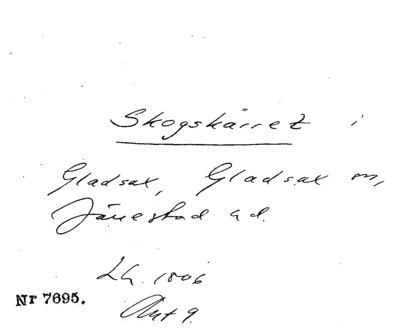 Skogskärret i
Gladsax, Gladsax sn,
Järrestad hd.
LA. 1806
Nr 7695.
Akt 9.